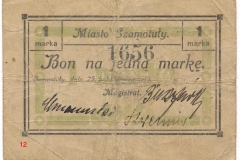 1 Miasto Szamotuły 1
marka 1656 marka
Bon na jedną markę.
Szamotuły, dnia
Magistrat.
12